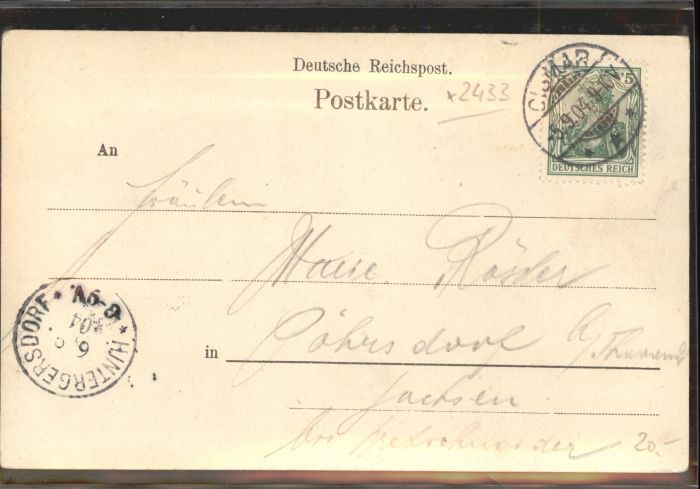 Deutsche Reichspost.
Postkarte.
x2433
CISMAR
5.9.04.
5
DEUTSCHES REICH
An
Fräulein
Marie Rösler
in Föhrsdorf a/Tharandt
Sachsen
bei
20.-
HINTERGERSDORF
6
04